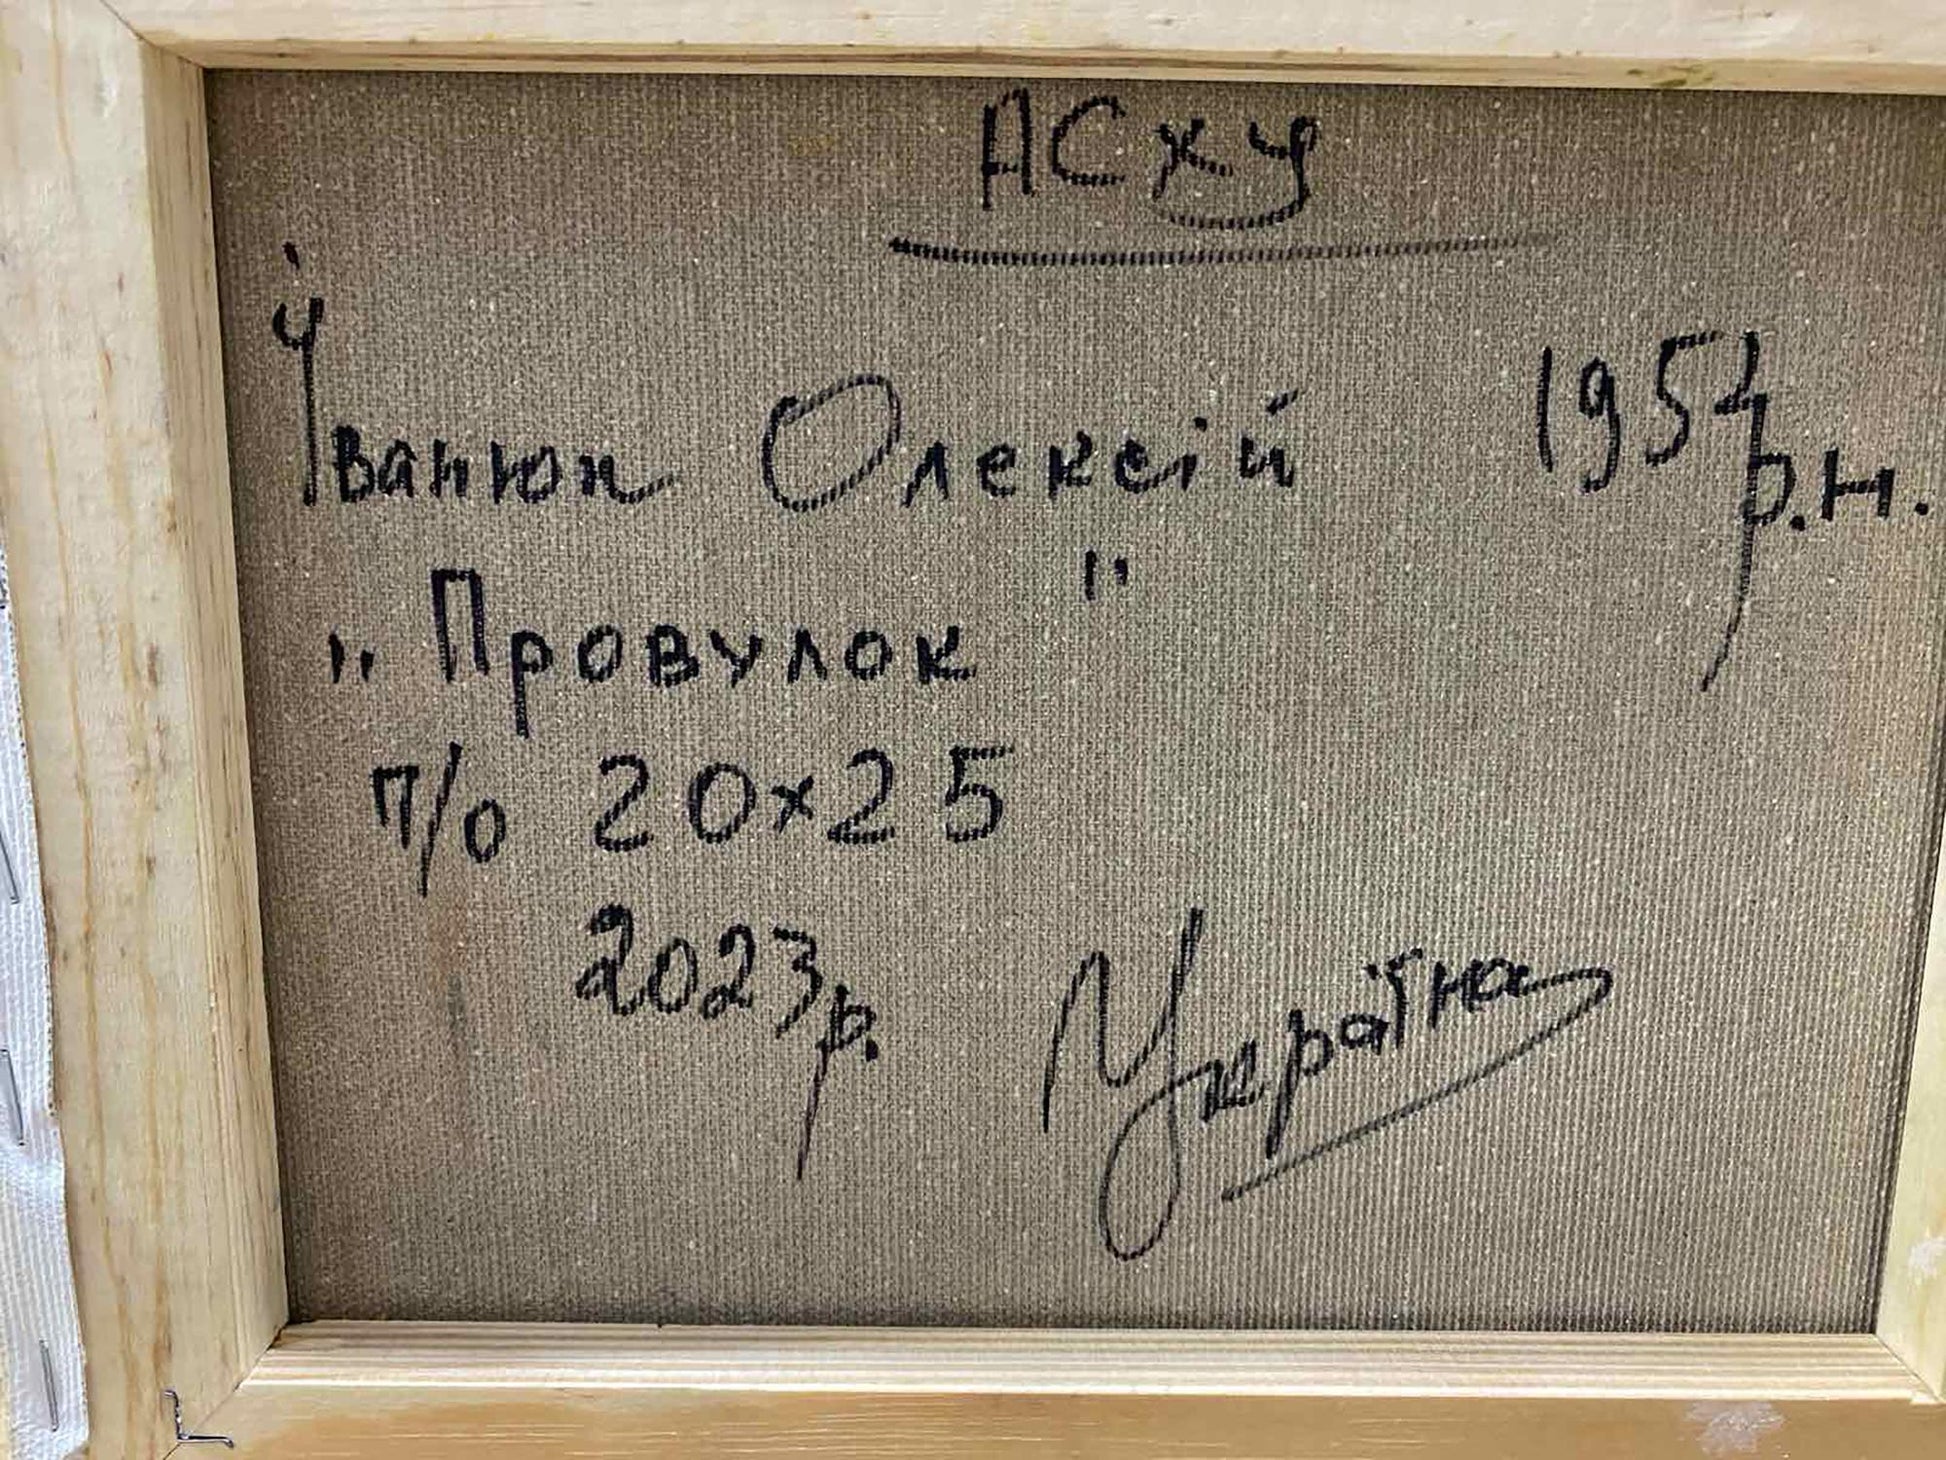 АСХУ
Іванюк Олексій 1954 р.н.
„Провулок"
п/о 20х25
2023р. Україна